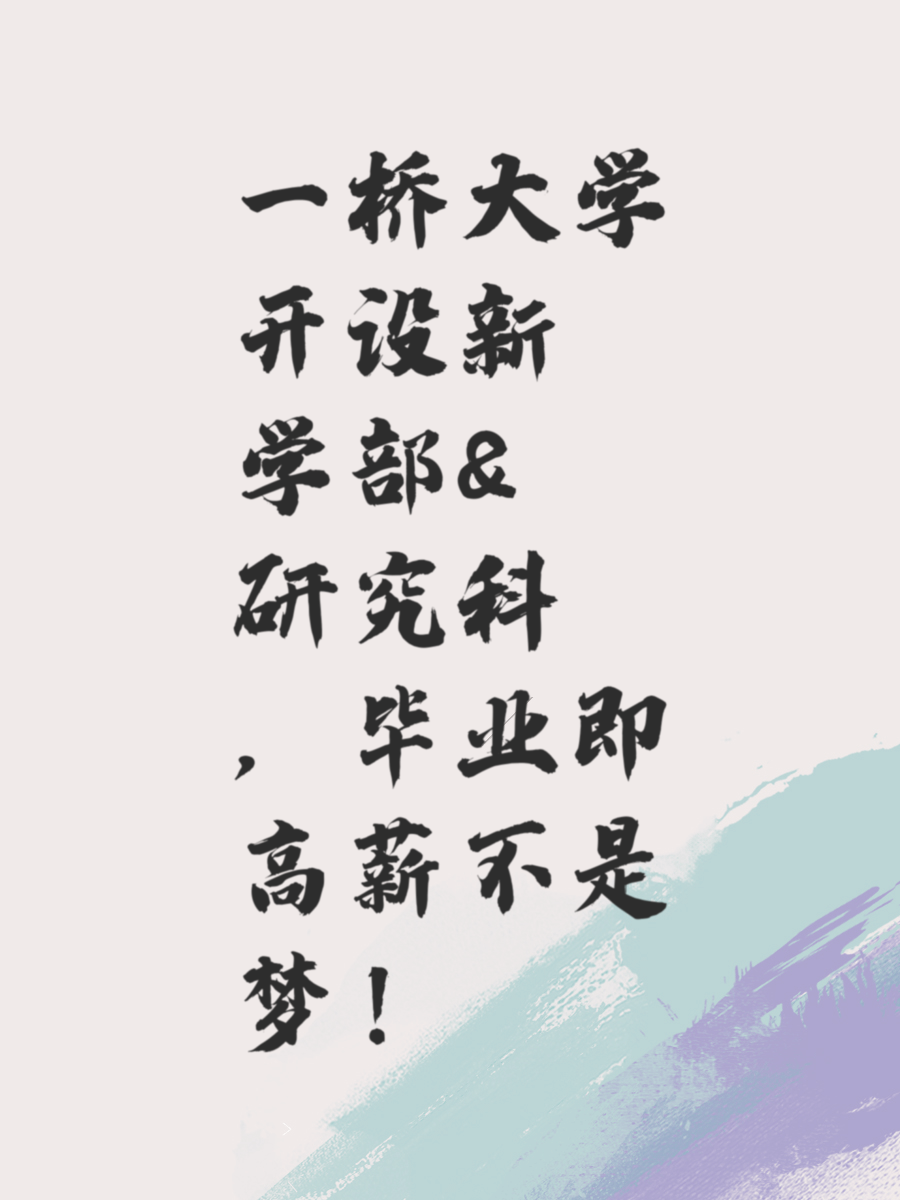 一桥大学
开设新
学部&
研究科
，毕业即
高薪不是
梦！